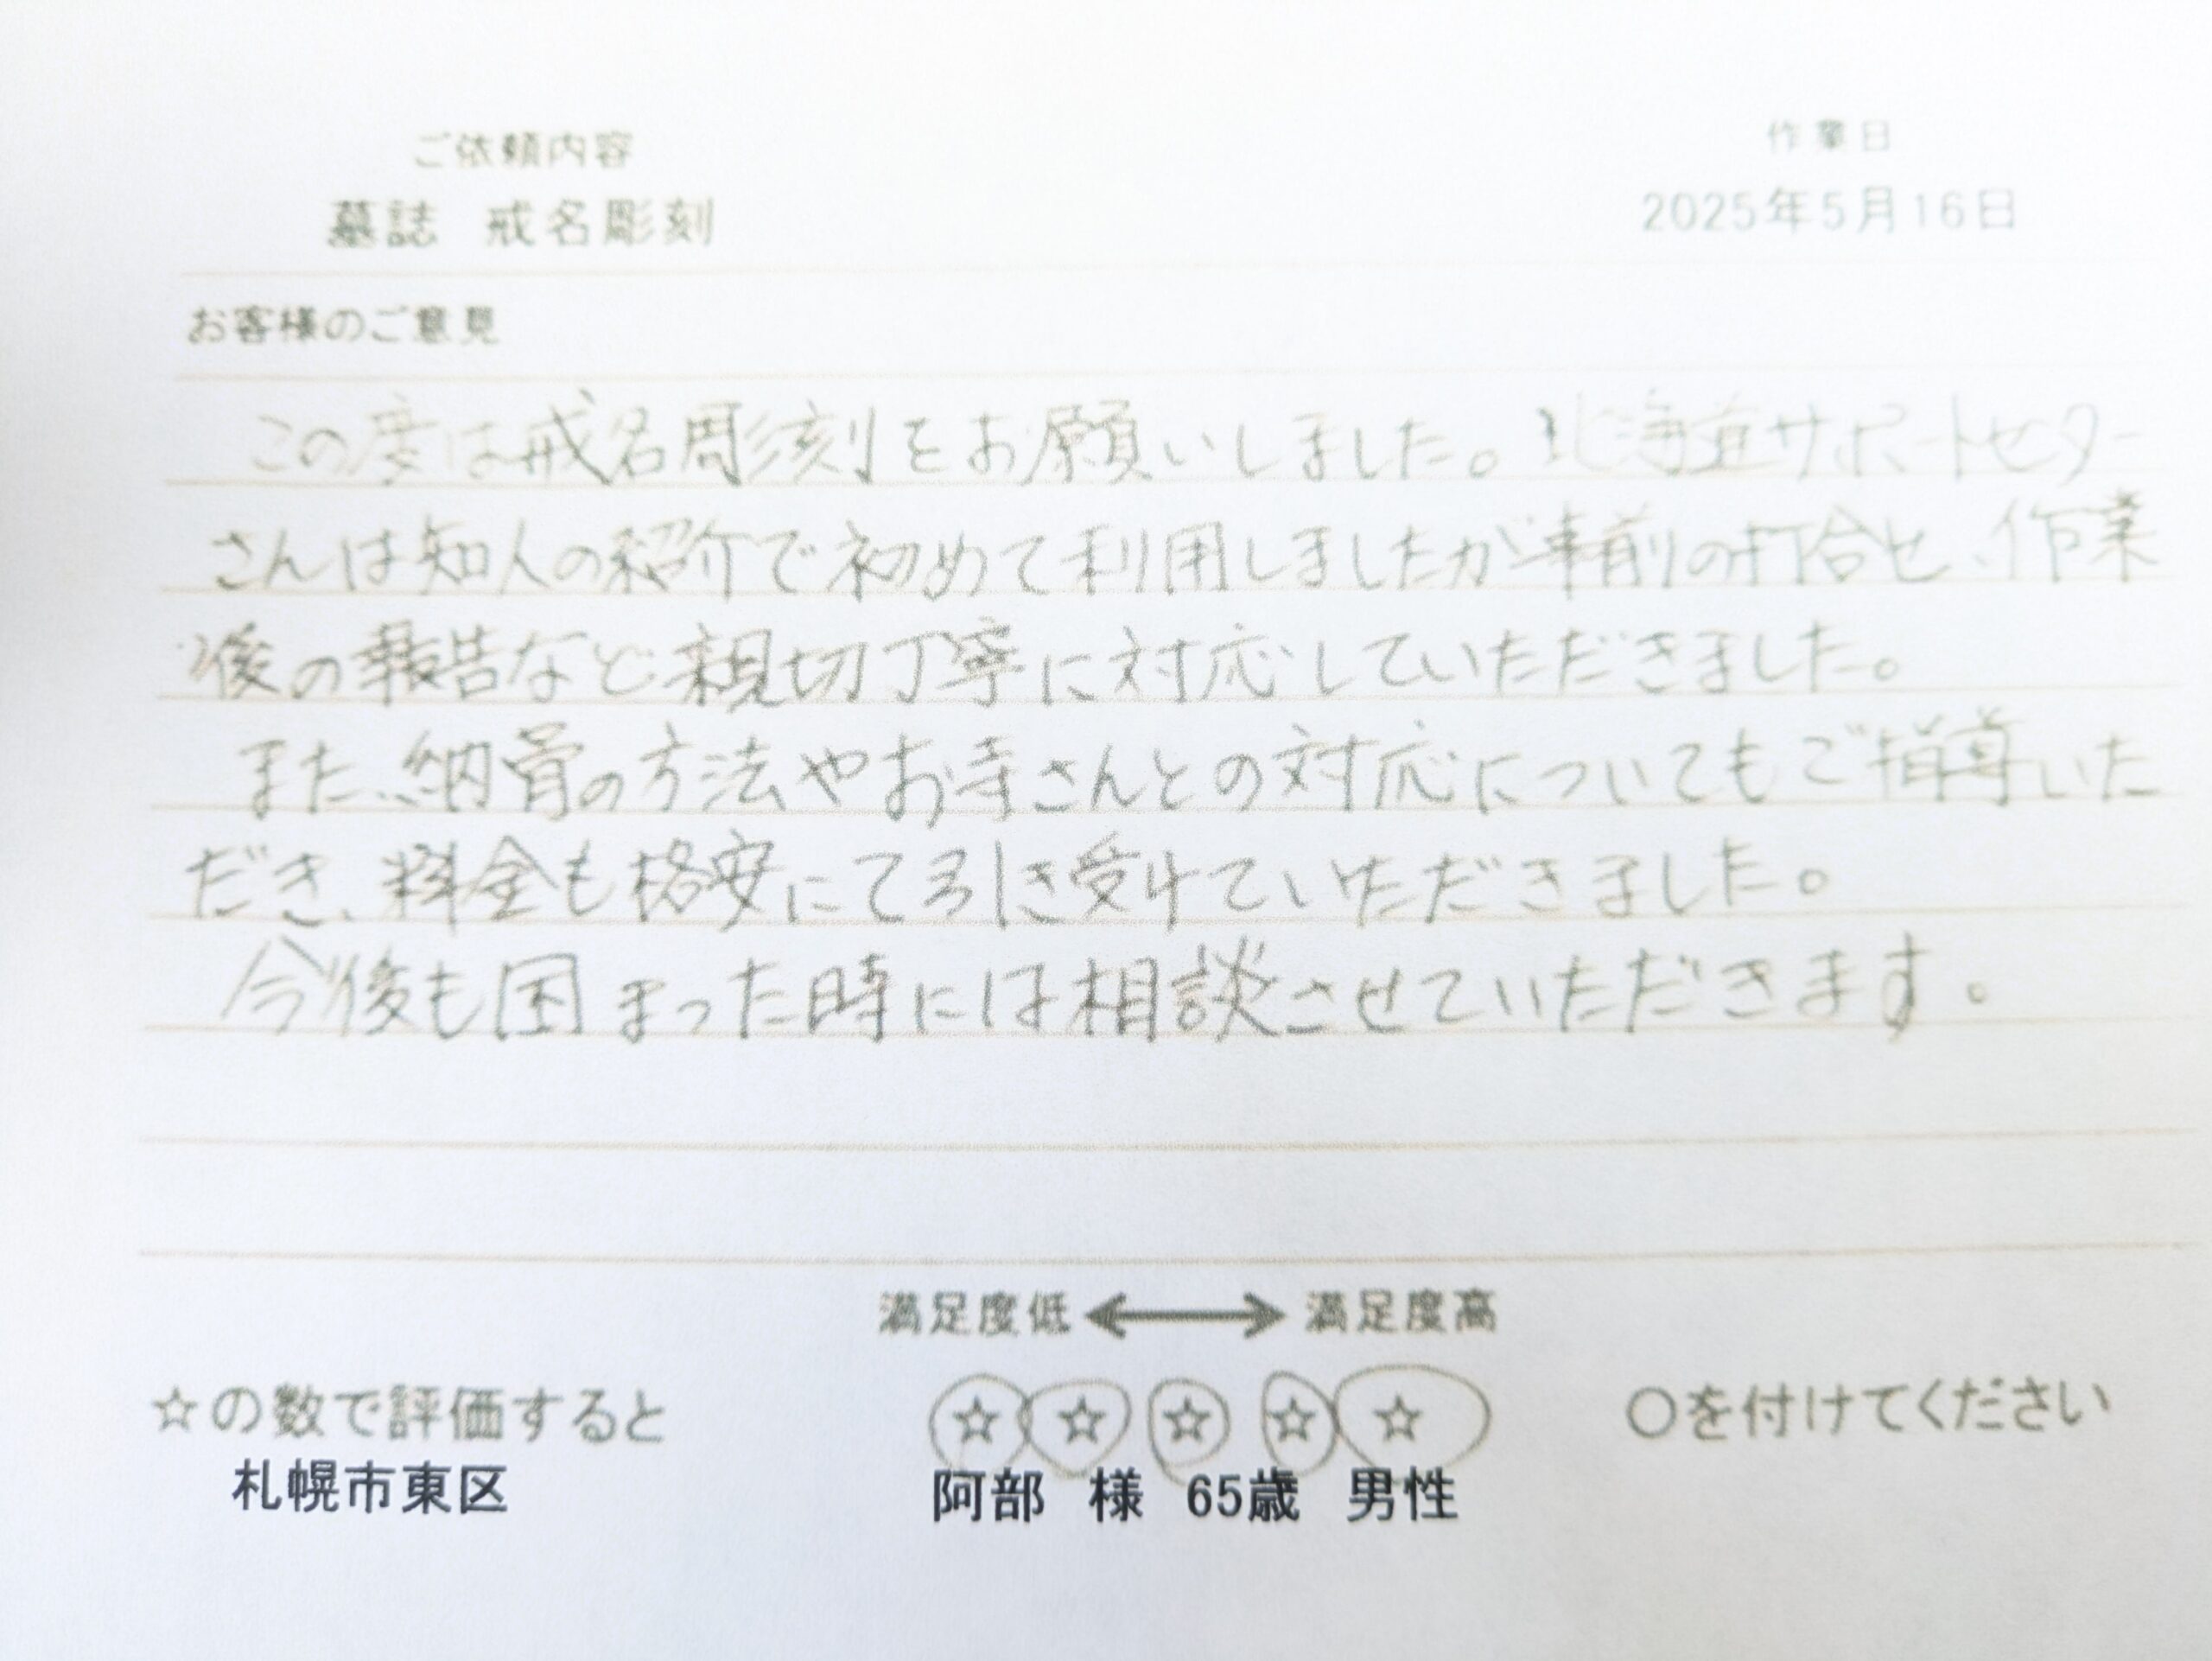 ご依頼内容
作業日
墓誌 戒名彫刻
2025年5月16日
お客様のご意見
この度は戒名彫刻をお願いしました。北海道サポートセター
さんは知人の紹介で初めて利用しましたが事前の打合せ、作業
後の報告など親切丁寧に対応していただきました。
また、納骨の方法やお寺さんとの対応についてもご指導いた
だき、料金も格安にて引き受けていただきました。
今後も困まった時には相談させていただきます。
満足度低 ←→ 満足度高
☆の数で評価すると ☆ ☆ ☆ ☆ ☆ ○を付けてください
札幌市東区 阿部 様 65歳 男性